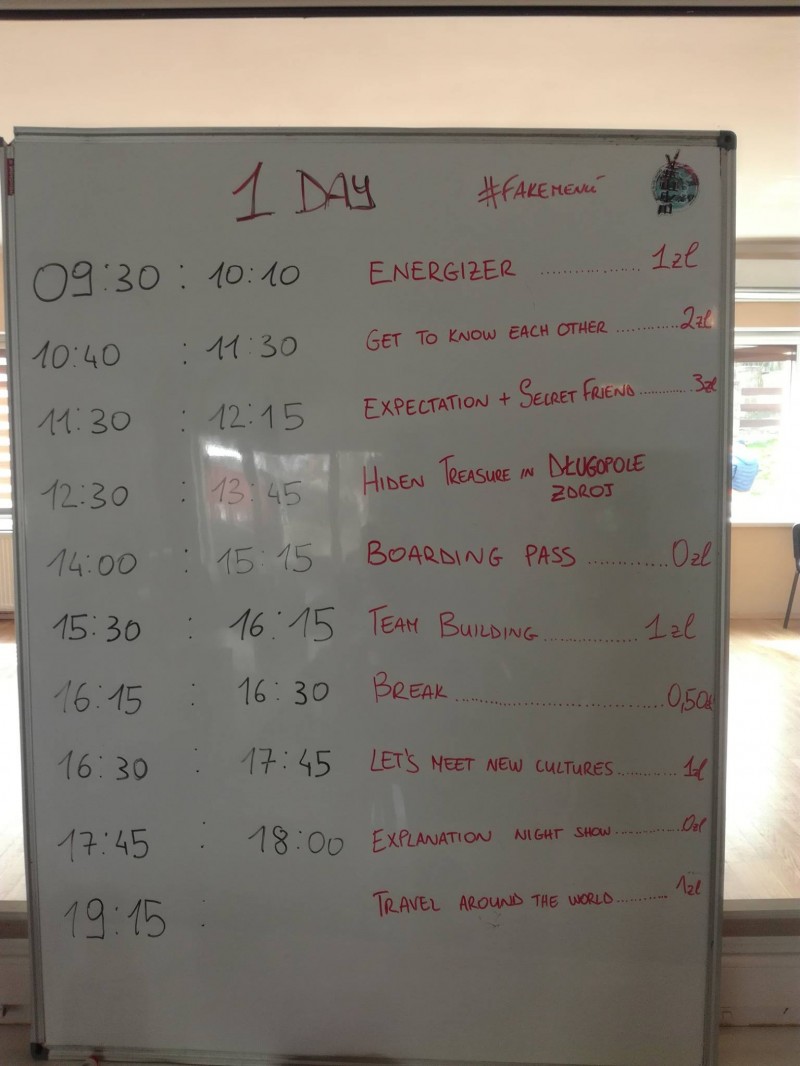 1 DAY #FAKEMENÙ
09:30 : 10:10 ENERGIZER .................. 1zl
10:40 : 11:30 GET TO KNOW EACH OTHER ............ 2zl
11:30 : 12:15 EXPECTATION + SECRET FRIEND ............ 3zl
12:30 : 13:45 HIDEN TREASURE IN DŁUGOPOLE
ZDROJ
14:00 : 15:15 BOARDING PASS ............ 0zl
15:30 : 16:15 TEAM BUILDING ............... 1zl
16:15 : 16:30 BREAK .............................. 0,50zl
16:30 : 17:45 LET'S MEET NEW CULTURES ............ 1zl
17:45 : 18:00 EXPLANATION NIGHT SHOW ............ 0zl
19:15 : TRAVEL AROUND THE WORLD ............ 1zl